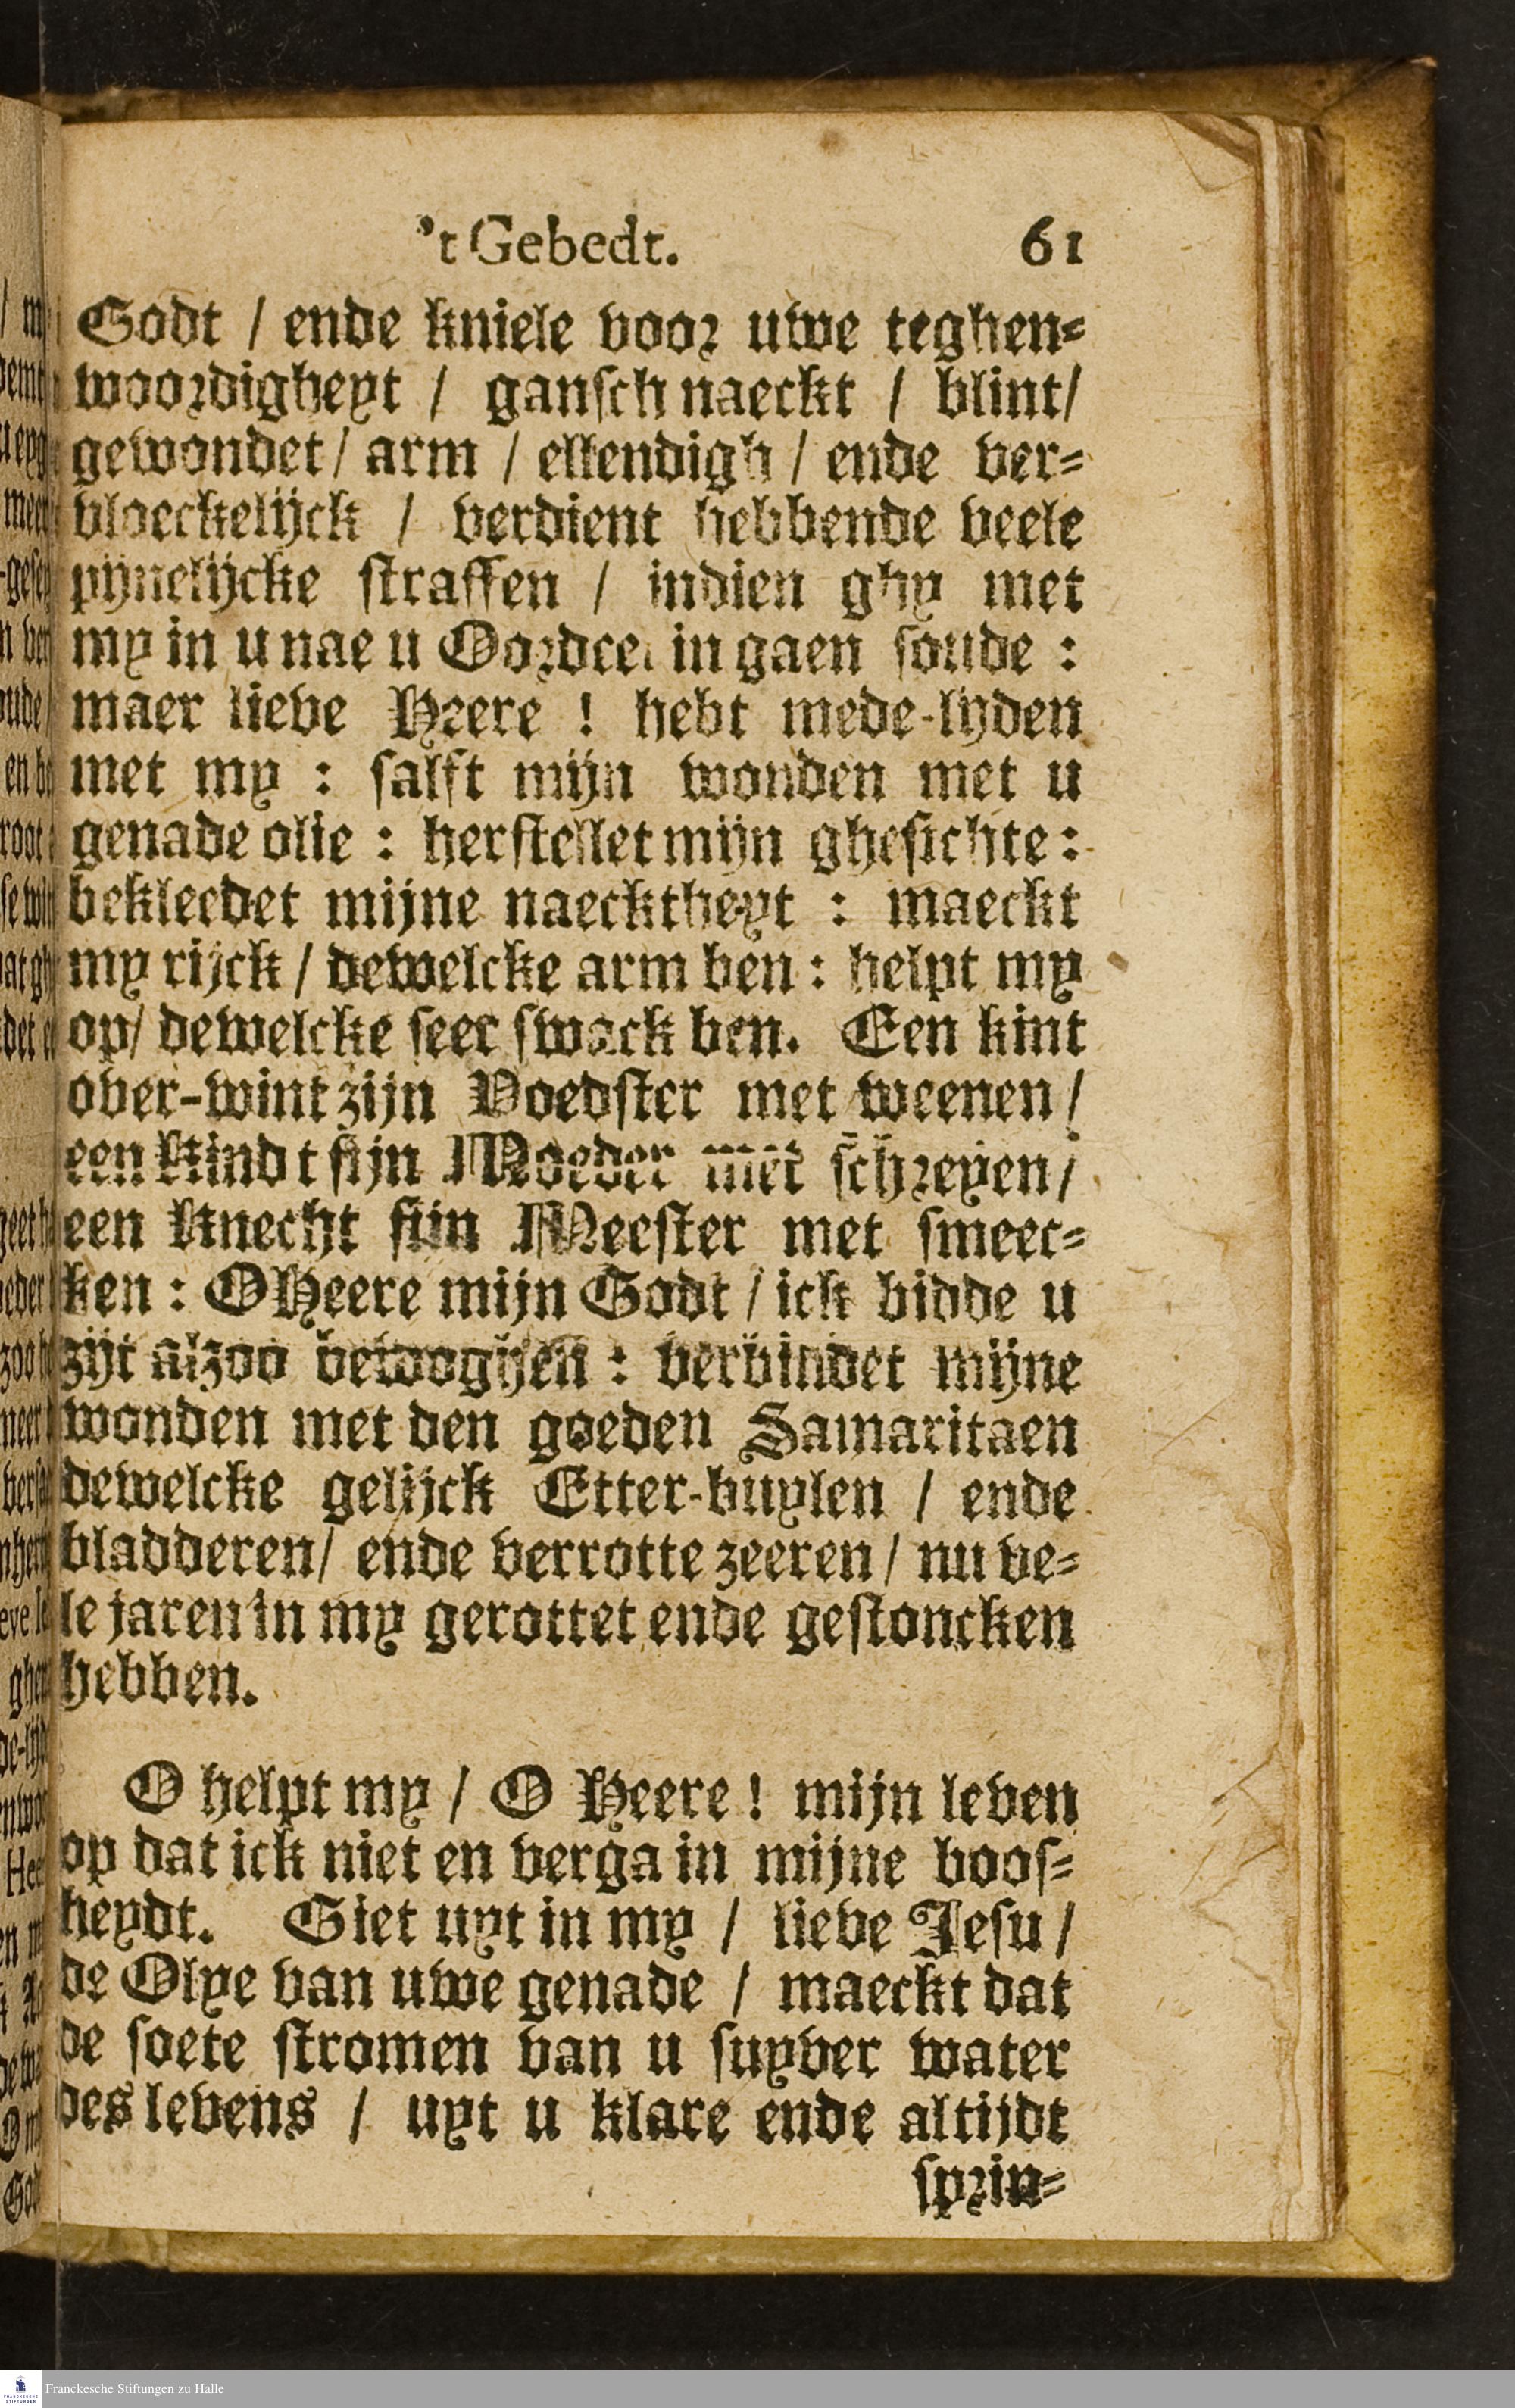 't Gebedt. 61
Godt / ende kniele voor uwe teghen-
woordigheyt / gansch naeckt / blint/
gewondet / arm / ellendigh / ende ver-
vloeckelijck / verdient hebbende veele
pijnelijcke straffen / indien ghy met
my in u nae u Oordeel in gaen soude :
maer lieve Heere ! hebt mede-lijden
met my : salft mijn wonden met u
genade olie : herstellet mijn ghesichte :
bekleedet mijne naecktheyt : maeckt
my rijck / dewelcke arm ben : helpt my
op/ dewelcke seer swack ben. Een kint
over-wint zijn Voedster met weenen /
een Kindt sijn Moeder met schreyen /
een Knecht sijn Meester met smeec-
ken : O Heere mijn Godt / ick bidde u
zijt alzoo bewoghen : verbindet mijne
wonden met den goeden Samaritaen
dewelcke gelijck Etter-buylen / ende
bladderen/ ende verrotte zeeren / nu ve-
le jaren in my gerottet ende gestoncken
hebben.
O helpt my / O Heere ! mijn leven
op dat ick niet en verga in mijne boos-
heydt. Giet uyt in my / lieve Jesu /
de Olye van uwe genade / maeckt dat
de soete stromen van u suyver water
des levens / uyt u klare ende altijdt
sprin-
Franckesche Stiftungen zu Halle